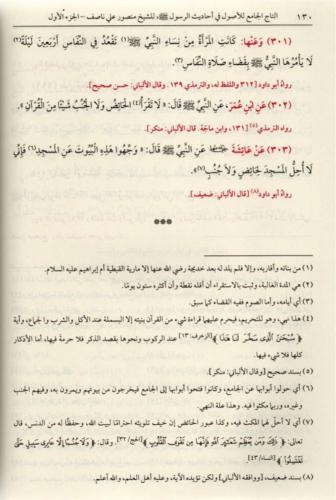 ١٣٠ التاج الجامع للأصول في أحاديث الرسول ﷺ، للشيخ منصور علي ناصف – الجزء الأول
(٣٠١) وَعَنْهَا: كَانَتِ المَرْأَةُ مِنْ نِسَاءِ النَّبِيِّ ﷺ تَقْعُدُ فِي النِّفَاسِ أَرْبَعِينَ لَيْلَةً(٢)
لَا يَأْمُرُهَا النَّبِيُّ ﷺ بِقَضَاءِ صَلَاةِ النِّفَاسِ(٣).
رواه أبو داود [٣١٢ واللفظ له، والترمذي ١٣٩. وقال الألباني: حسن صحيح].
(٣٠٢) عَنِ ابْنِ عُمَرَ، عَنِ النَّبِيِّ ﷺ قَالَ: «لَا تَقْرَأُ(٤) الحَائِضُ وَلَا الجُنُبُ شَيْئًا مِنَ القُرْآنِ».
رواه الترمذي(٥) [١٣١، وابن ماجة. قال الألباني: منكر].
(٣٠٣) عَنْ عَائِشَةَ عَنِ النَّبِيِّ ﷺ قَالَ: «وَجِّهُوا هَذِهِ البُيُوتَ عَنِ المَسْجِدِ(٦) فَإِنِّي
لَا أُحِلُّ المَسْجِدَ لِحَائِضٍ وَلَا جُنُبٍ»(٧).
رواه أبو داود(٨) [قال الألباني: ضعيف].
***
(١) من بناته وأقاربه، وإلا فلم يلد له بعد خديجة رضي الله عنها إلا مارية القبطية أم إبراهيم عليه السلام.
(٢) هي المدة الغالبة، وثبت بالاستقراء أن أقله نقطة وأن أكثره ستون يومًا.
(٣) أي أيامه، وأما الصوم ففيه القضاء كما سبق.
(٤) هذا نهي، وهو للتحريم، فيحرم عليهما قراءة شيء من القرآن بنيته إلا البسملة عند الأكل والشرب والجماع، وآية
﴿سُبْحَٰنَ ٱلَّذِى سَخَّرَ لَنَا هَٰذَا﴾ [الزخرف/١٣] عند الركوب ونحوها بقصد الذكر فلا حرمة فيها، أما الأذكار
كلها فلا شيء فيها.
(٥) بسند صحيح [وقال الألباني: منكر].
(٦) أي حولوا أبوابها عن الجامع، وكانوا فتحوا أبوابها إلى الجامع فيخرجون من بيوتهم ويمرون به، وفيهم الجنب
وغيره، وربما مكثوا فيه. وهذا علة النهي.
(٧) أي لا أحل لهما المكث فيه، وكذا عبور الحائض إن خيف تلويثه احترامًا لبيت الله، وحفظًا له من الدنس، قال
تعالى: ﴿ذَٰلِكَ وَمَن يُعَظِّمْ شَعَٰٓئِرَ ٱللَّهِ فَإِنَّهَا مِن تَقْوَى ٱلْقُلُوبِ﴾ [الحج/٣٢]. وقال: ﴿وَلَا جُنُبًا إِلَّا عَابِرِى سَبِيلٍ حَتَّىٰ
تَغْتَسِلُوا۟﴾ [النساء/٤٣].
(٨) بسند ضعيف، [ووافقه الألباني] ولكن تؤيده الآية، وعليه أهل العلم، والله أعلم.